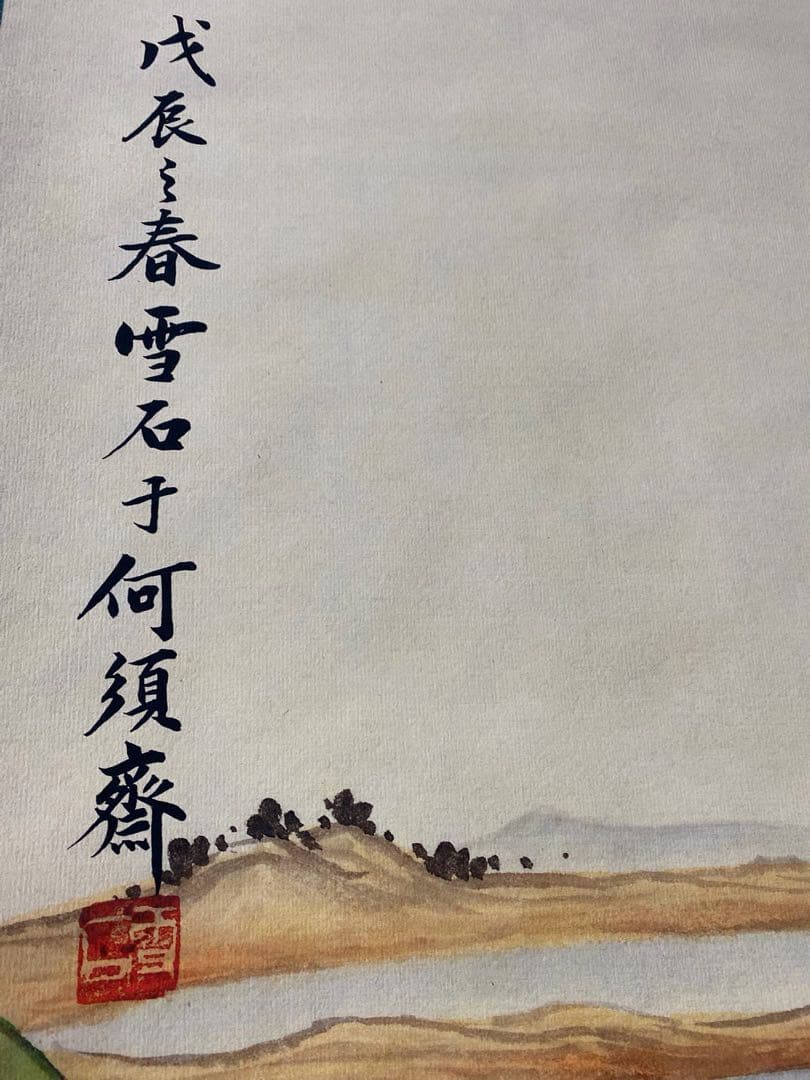 戊辰之春雪石于何須齋
雪石